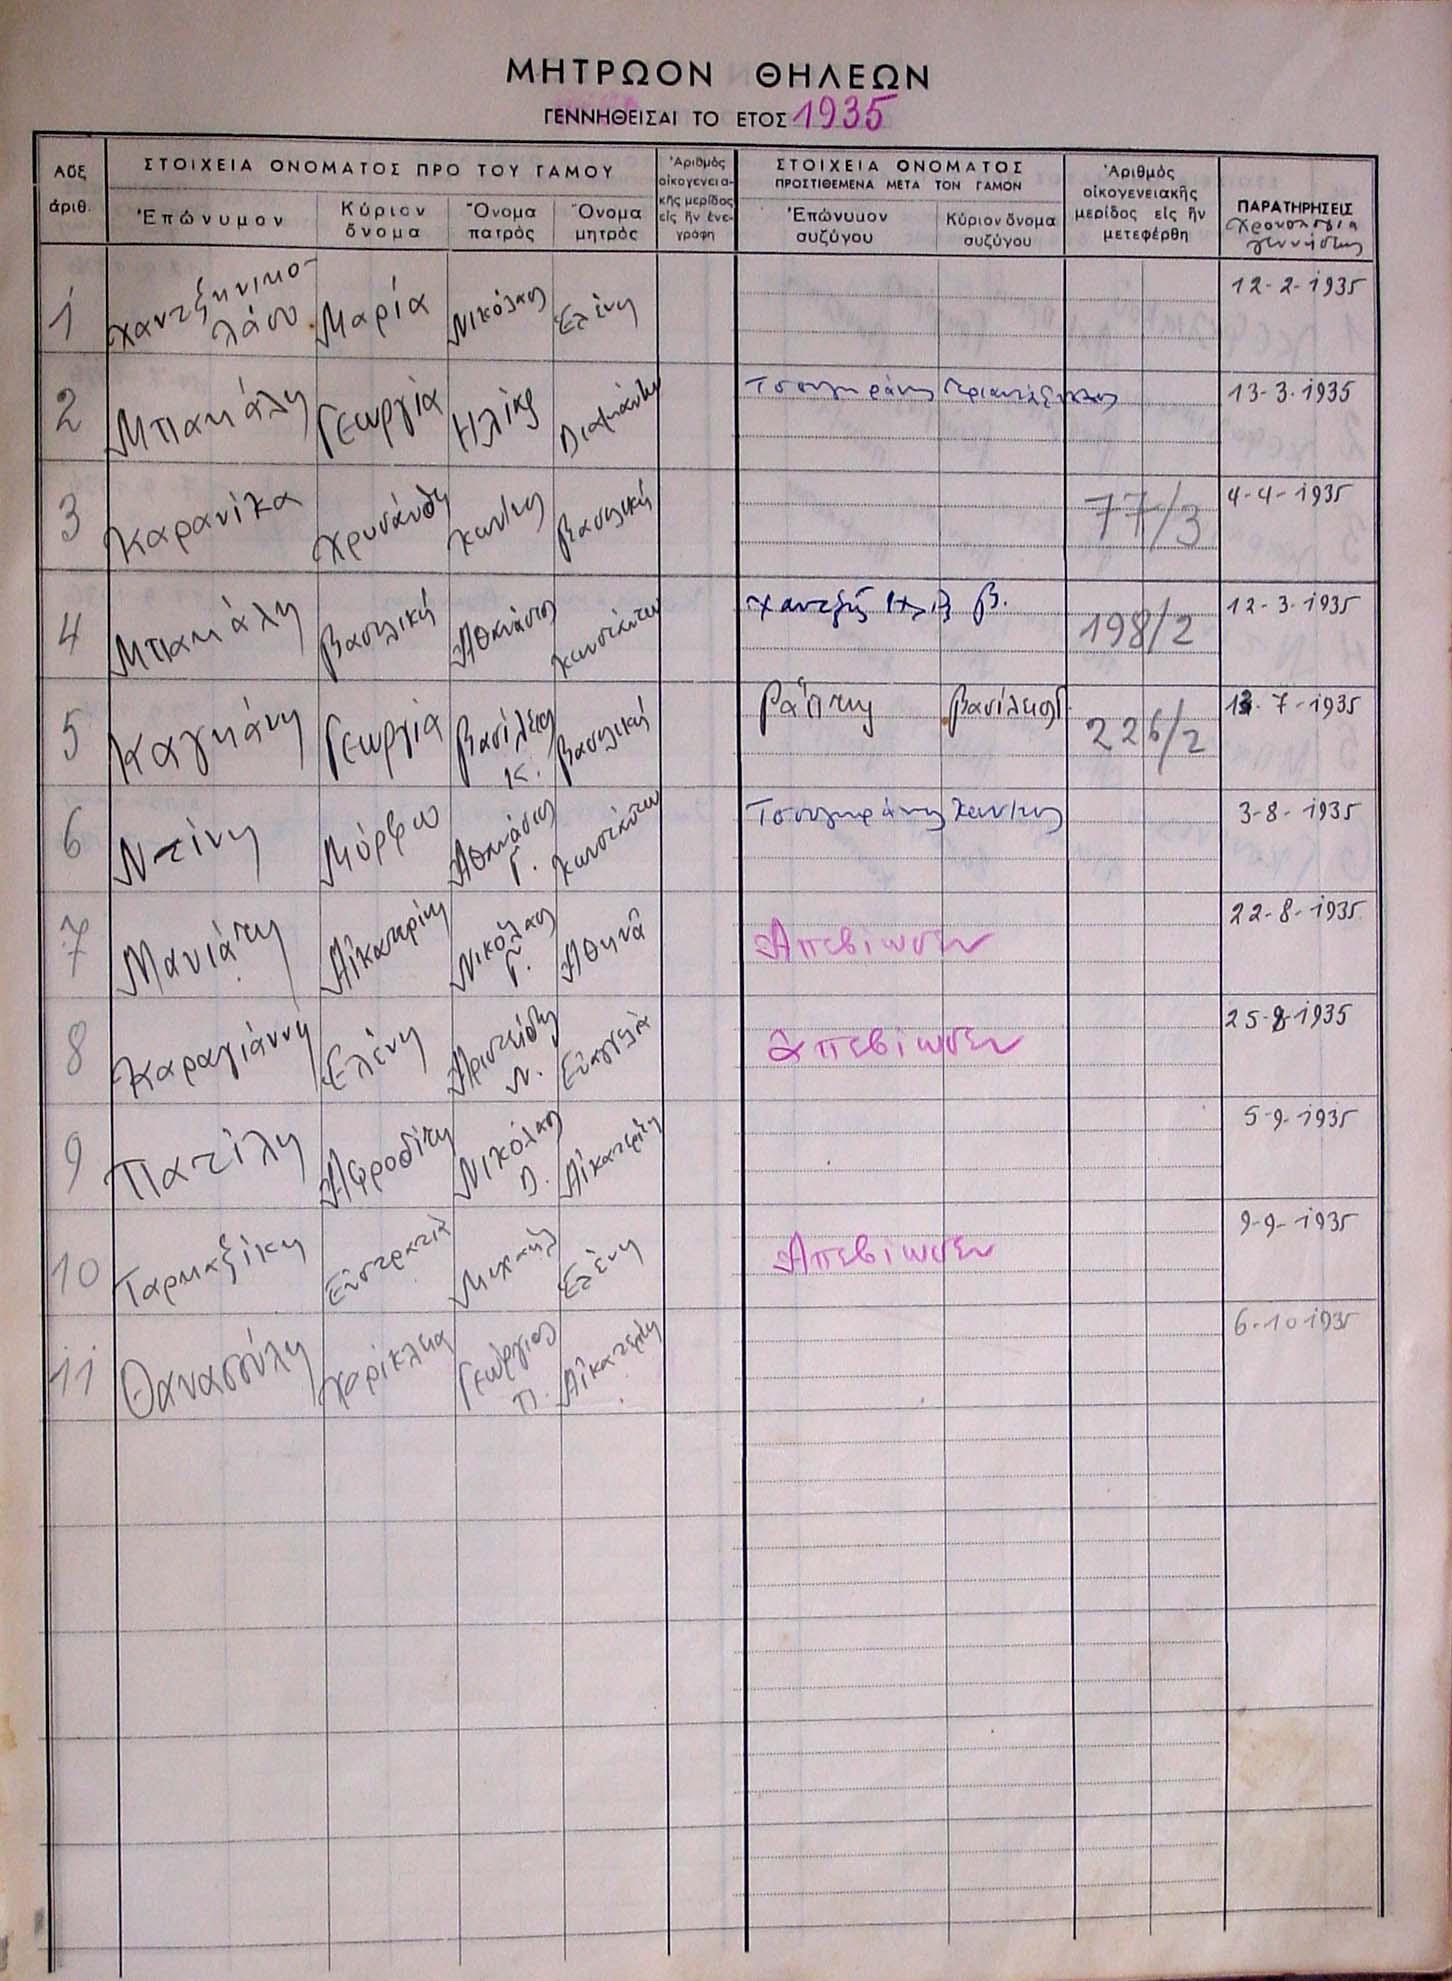 ΜΗΤΡΩΟΝ ΘΗΛΕΩΝ
ΓΕΝΝΗΘΕΙΣΑΙ ΤΟ ΕΤΟΣ 1935
Αὔξ ἀριθ.
ΣΤΟΙΧΕΙΑ ΟΝΟΜΑΤΟΣ ΠΡΟ ΤΟΥ ΓΑΜΟΥ
Ἐπώνυμον
Κύριον ὄνομα
Ὄνομα πατρὸς
Ὄνομα μητρὸς
Ἀριθμὸς οἰκογενεια-κῆς μερίδος εἰς ἣν ἐνε-γράφη
ΣΤΟΙΧΕΙΑ ΟΝΟΜΑΤΟΣ
ΠΡΟΣΤΙΘΕΜΕΝΑ ΜΕΤΑ ΤΟΝ ΓΑΜΟΝ
Ἐπώνυμον συζύγου
Κύριον ὄνομα συζύγου
Ἀριθμὸς οἰκογενειακῆς μερίδος εἰς ἣν μετεφέρθη
ΠΑΡΑΤΗΡΗΣΕΙΣ
Χρονολογία γεννήσεως
1 Χαντζηνικο-λάου Μαρία Νικόλαος Ελένη 12-2-1935
2 Μπακάλη Γεωργία Ηλίας Διαμάντω 13-3-1935
3 Καρανίκα Χρυσάνθη Κων/νος Βασιλική 77/3 4-4-1935
4 Μπακάλη Βασιλική Αθανάσιος Κωνστάντω Χαντζής Β. 198/2 12-3-1935
5 Καγκάνη Γεωργία Βασίλειος Κ. Βασιλική Ράπτης Βασίλειος 226/2 7-1935
6 Ντίνη Μόρφω Αθανάσιος Γ. Κωνστάντω Κων/νος 3-8-1935
7 Μανιάτη Αἰκατερίνη Νικόλαος Γ. Αθηνᾶ Απεβίωσεν 22-8-1935
8 Καραγιάννη Ελένη Αριστείδης Ν. Εὐαγγελία Απεβίωσεν 25-8-1935
9 Πατίλη Αφροδίτη Νικόλαος Δ. Αἰκατερίνη 5-9-1935
10 Ταρμαξίκη Εὐστρατία Μιχαήλ Ελένη Απεβίωσεν 9-9-1935
11 Θανασούλη Χαρίκλεια Γεώργιος Π. Αἰκατερίνη 6-10-1935